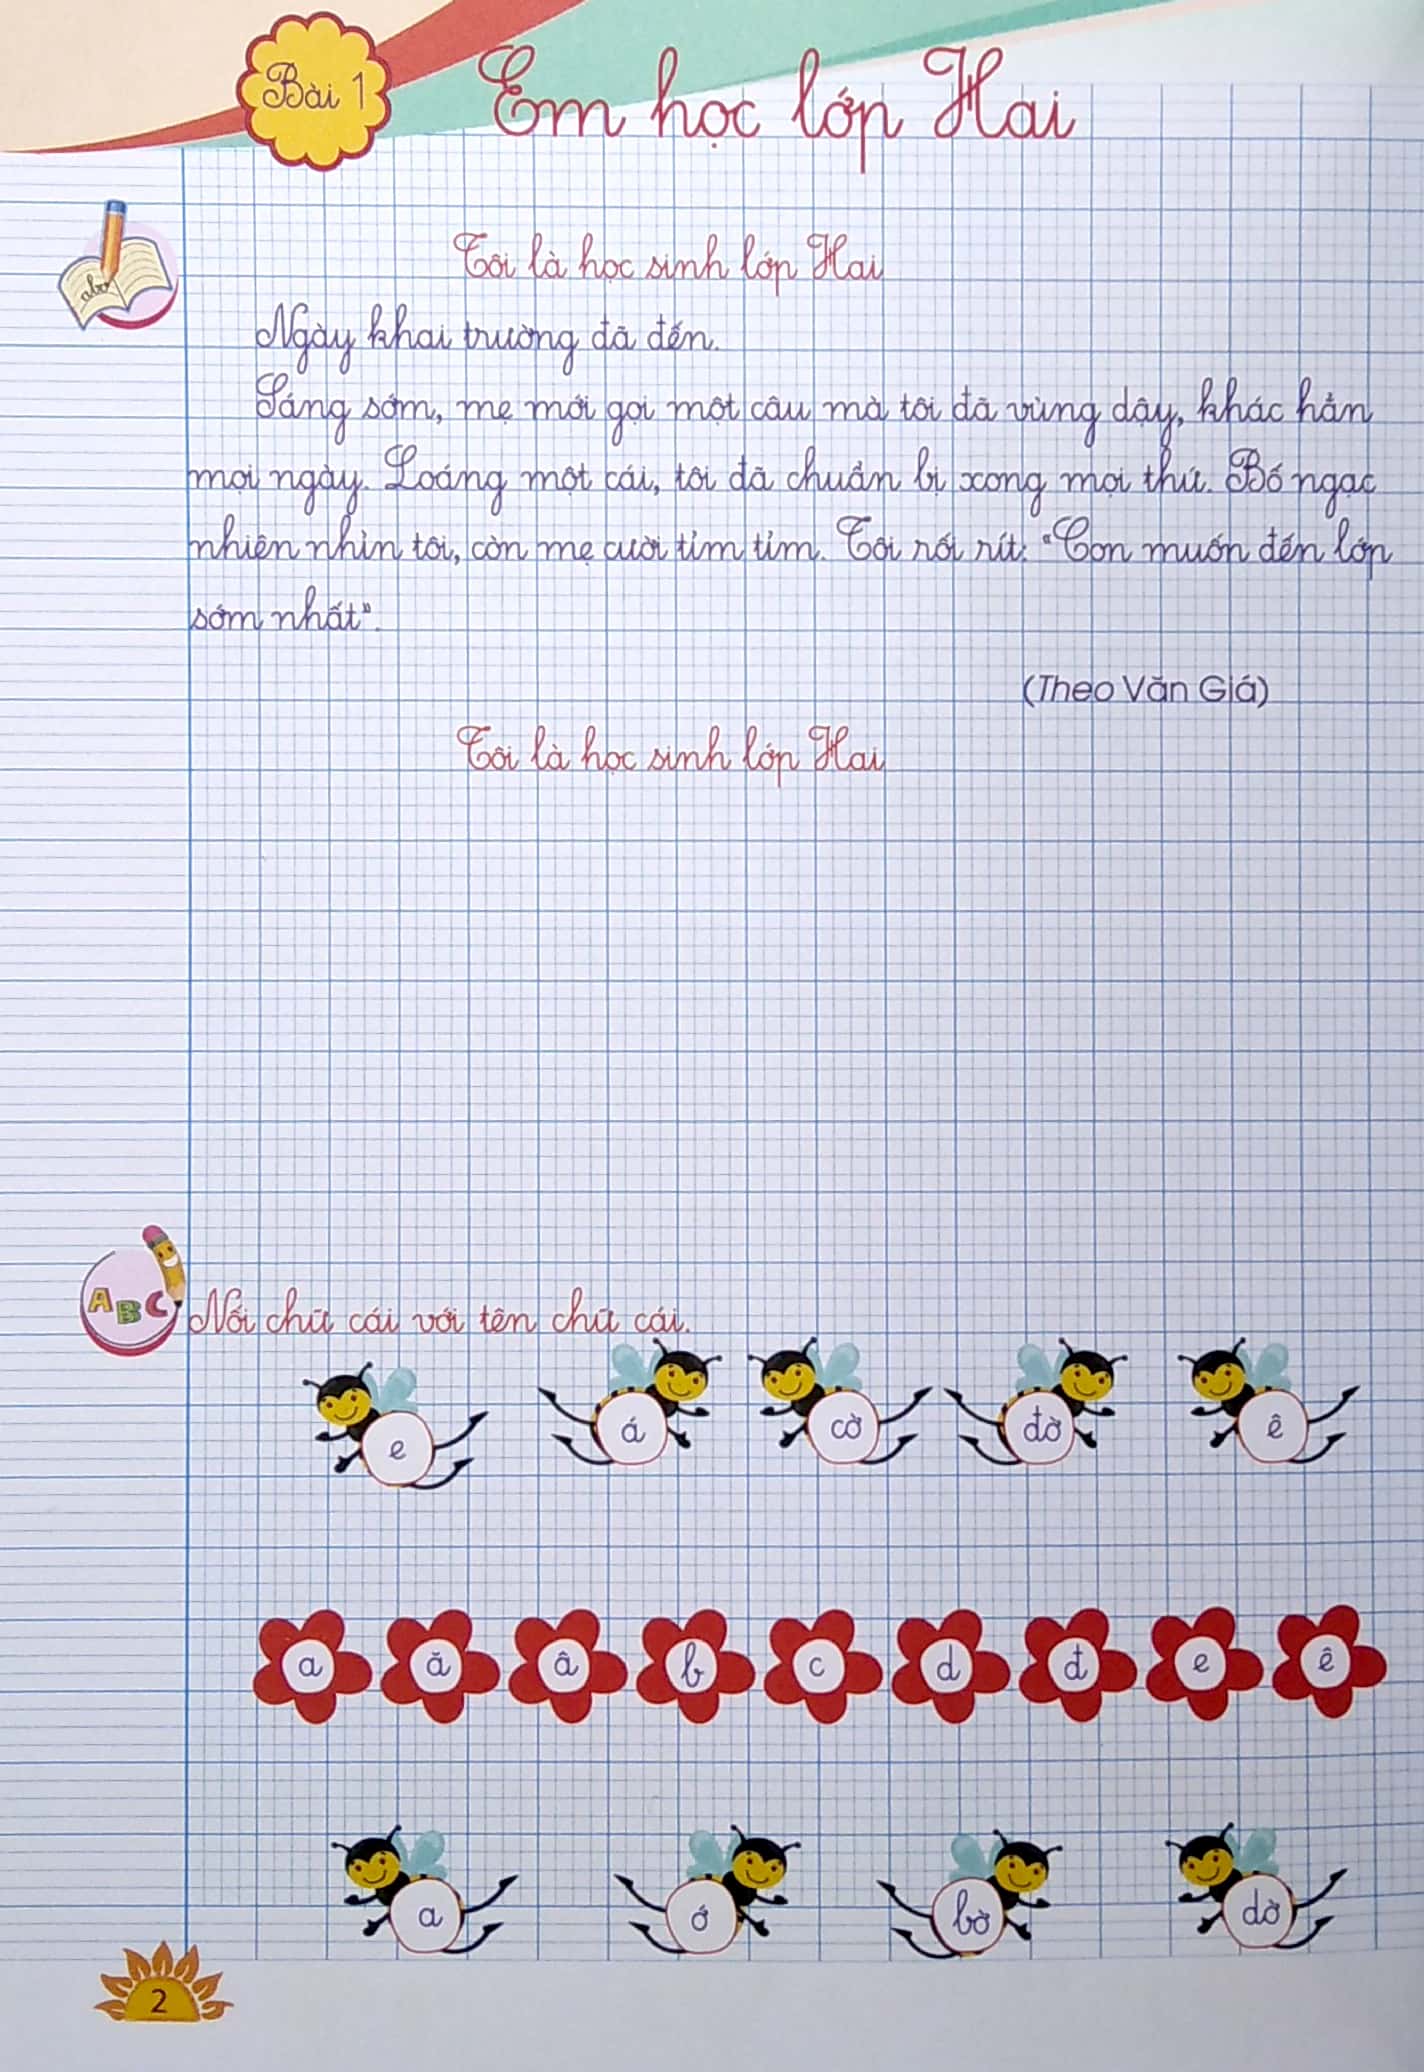 Bài 1
Em học lớp Hai
abc
Tôi là học sinh lớp Hai
Ngày khai trường đã đến.
Sáng sớm, mẹ mới gọi một câu mà tôi đã vùng dậy, khác hẳn
mọi ngày. Loáng một cái, tôi đã chuẩn bị xong mọi thứ. Bố ngạc
nhiên nhìn tôi, còn mẹ cười tủm tỉm. Tôi rối rít: "Con muốn đến lớp
sớm nhất".
(Theo Văn Giá)
Tôi là học sinh lớp Hai
ABC
Nối chữ cái với tên chữ cái.
e á cờ đờ ê
a ă â b c d đ e ê
a ớ bờ dờ
2